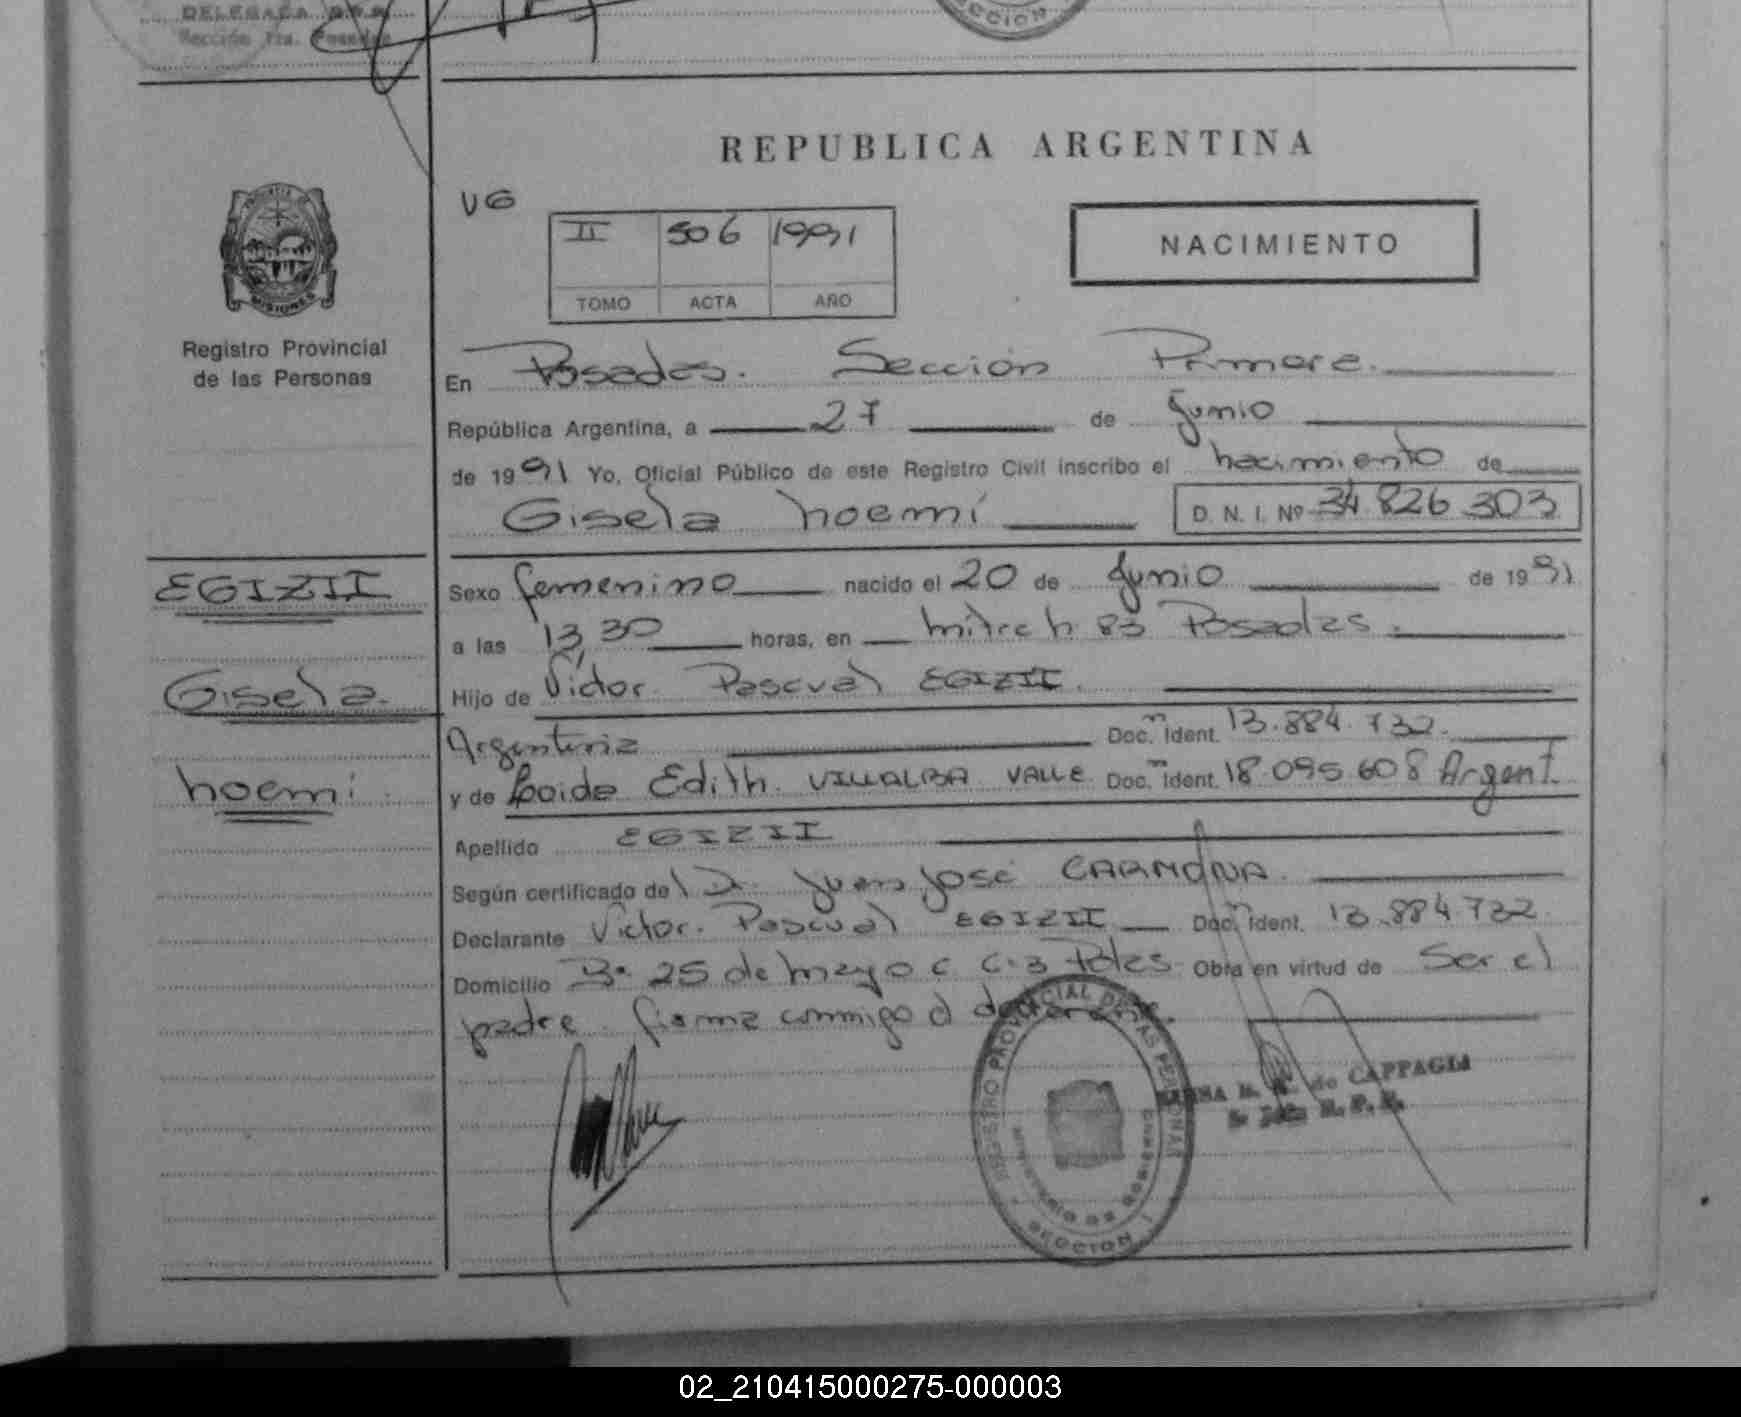 DELEGADA D.R.P.
Sección 1ra. Posadas
SECCION
REPUBLICA ARGENTINA
VG
II 506 1991
TOMO ACTA AÑO
NACIMIENTO
MISIONES
Registro Provincial
de las Personas
En Posadas. Sección Primera.
República Argentina, a 27 de Junio
de 1991 Yo, Oficial Público de este Registro Civil inscribo el nacimiento de
Gisela noemí D. N. I. Nº 34.826.303
EGIZII
Gisela.
noemi
Sexo femenino nacido el 20 de Junio de 1991
a las 13,30 horas, en mitre h 83 Posadas.
Hijo de Victor. Pascual EGIZII.
Argentina Doc. Ident. 13.884.732.
y de Loida Edith. VILLALBA VALLE Doc. Ident. 18.095.608 Argent.
Apellido EGIZII
Según certificado del Dr. Juan José CARMONA.
Declarante Victor. Pascual EGIZII Doc. Ident. 13.884.732
Domicilio Bº 25 de mayo c c.3 Pdas. Obra en virtud de Ser el
padre. firma conmigo el declarante.
REGISTRO PROVINCIAL DE LAS PERSONAS
MINISTERIO DE GOBIERNO
SECCION 1
de CAPPAGLI
R. P. P.
02_210415000275-000003